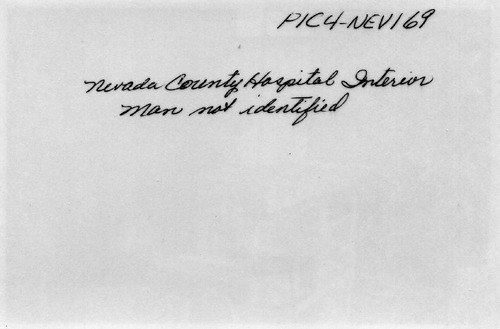 PIC4-NEV169
Nevada County Hospital Interior
Man not identified